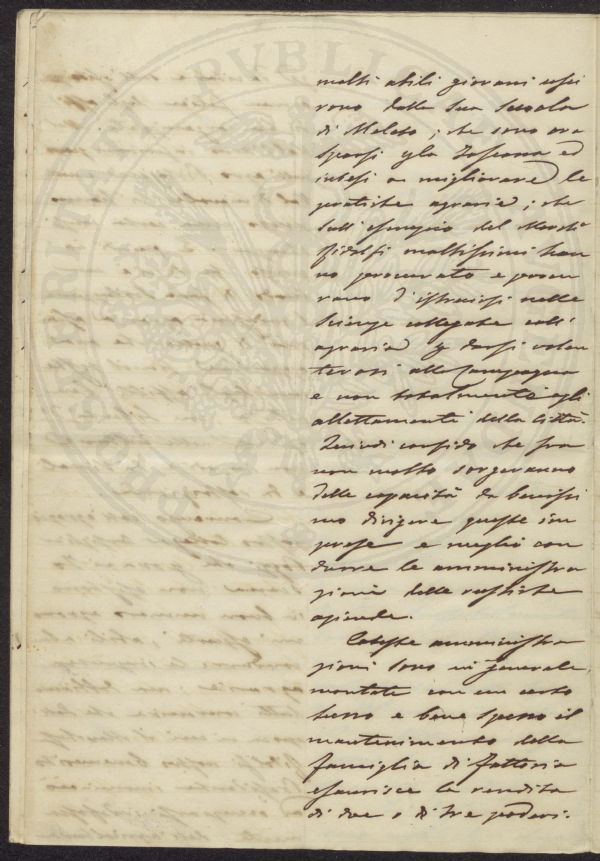 molti abili giovani usci
rono dalla sua Scuola
di Meleto; che sono ora
sparsi p la Toscana ed
intesi a migliorare le
pratiche agrarie; che
sull'esempio del March.
Ridolfi moltissimi han
no procurato e procu
rano d'istruirsi nelle
scienze collegate coll'
agraria p darsi volen
tierosi alla Campagna
e non totalmente agli
allettamenti della Città.
Quindi confido che fra
non molto sorgeranno
delle capacità da benissi
mo dirigere queste im
prese e meglio con
durre le amministra
zioni delle rustiche
aziende.
Coteste amministra
zioni sono in generale
montate con un certo
lusso e bene spesso il
mantenimento della
famiglia di fattoria
esaurisce la rendita
di due o di tre poderi.